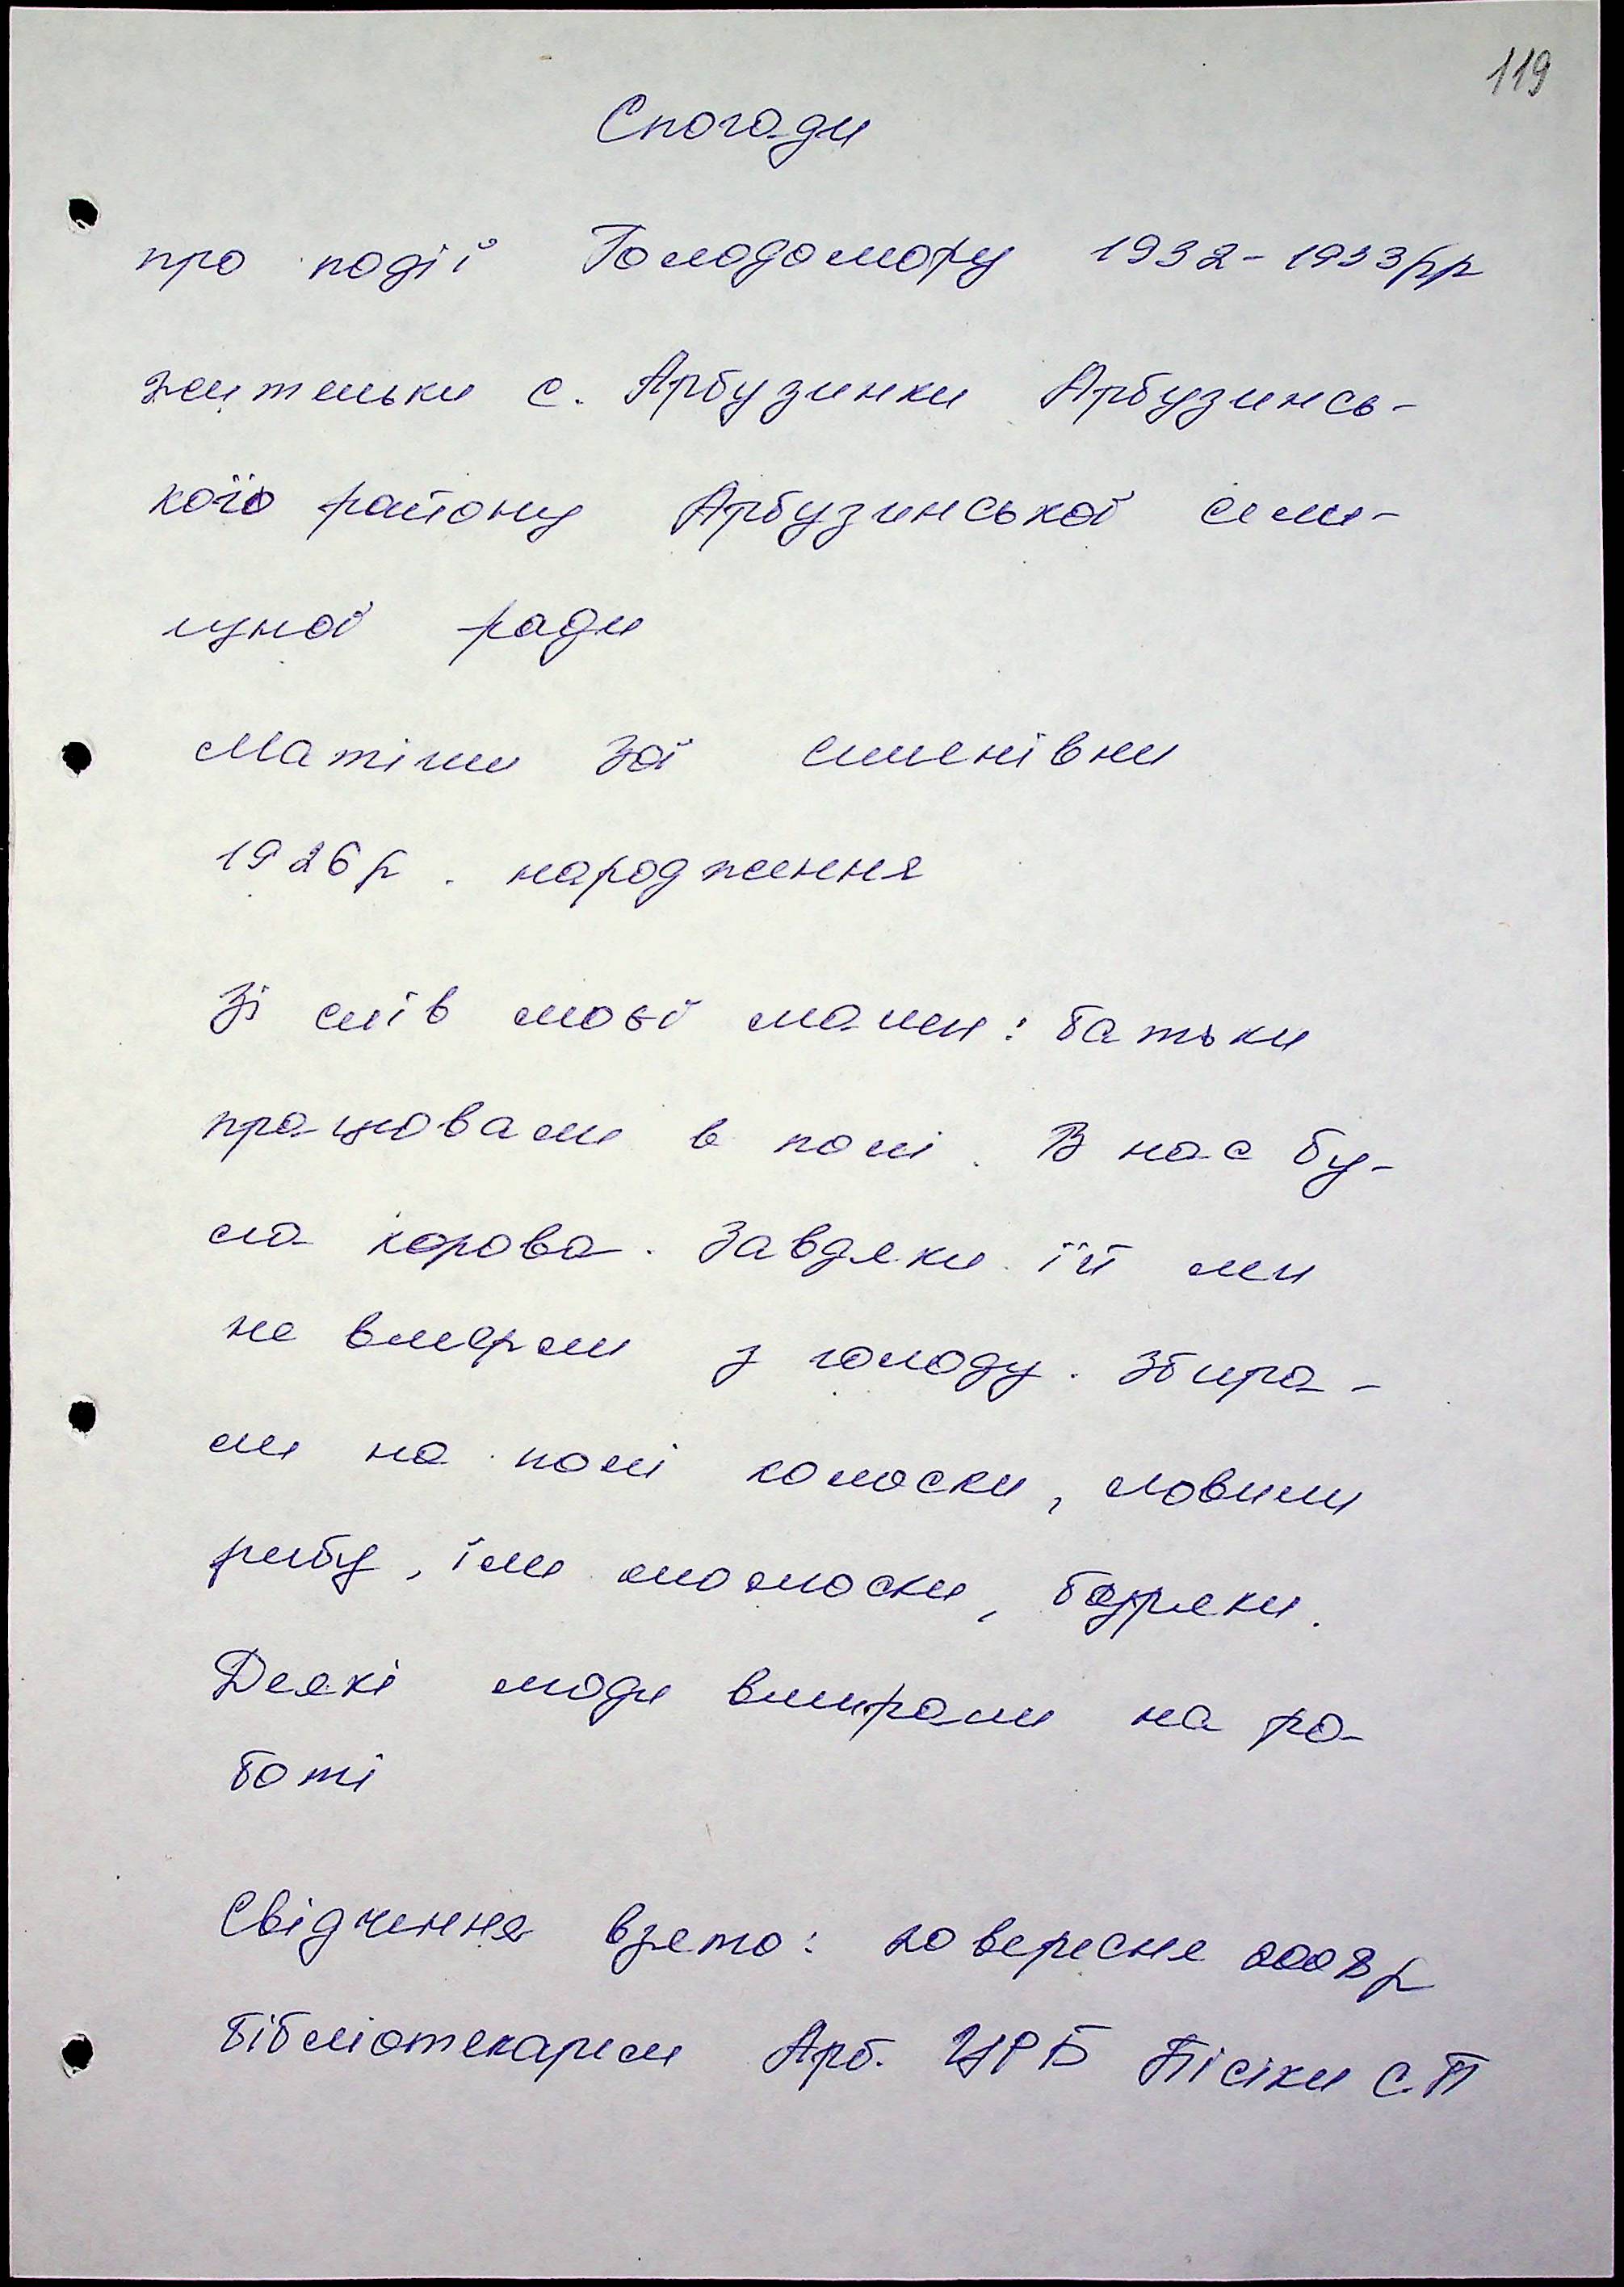 119
Спогади
про події Голодомору 1932-1933рр
жительки с. Арбузинки Арбузинсь-
кого району Арбузинської сели-
щної ради
Зої Семенівни
1926р. народження
Зі слів моєї мами: батьки
працювали в полі. В нас бу-
ла корова. Завдяки їй ми
не вмерли з голоду. Збира-
ли на полі колоски, ловили
рибу, їли молоски, буряки.
Деякі люди вмирали на ро-
боті
Свідчення взято: 20 вересня 2008р
бібліотекарем Арб. ЦРБ Пісіки С.П